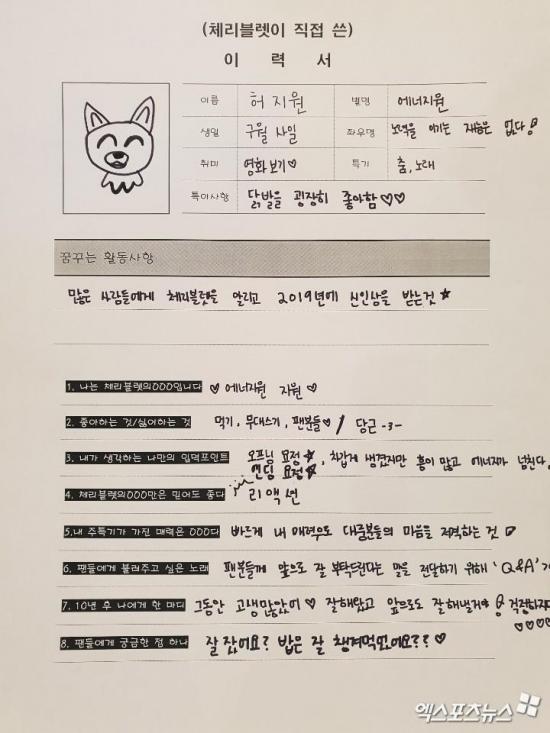 (체리블렛이 직접 쓴)
이 력 서
이름 허지원 별명 에너지원
생일 구월 사일 좌우명 노력을 이기는 재능은 없다!
취미 영화보기♡ 특기 춤, 노래
특이사항 닭발을 굉장히 좋아함♡♡
꿈꾸는 활동사항
많은 사람들에게 체리블렛을 알리고 2019년에 신인상을 받는것★
1. 나는 체리블렛의OOO입니다 ♡ 에너지원 지원 ♡
2. 좋아하는 것/싫어하는 것 먹기, 무대스기, 팬분들♡ / 당근 -3-
3. 내가 생각하는 나만의 입덕포인트 오프닝 요정★, 차갑게 생겼지만 흥이 많고 에너지가 넘친다.
엔딩 요정★
4. 체리블렛의OOO만은 믿어도 좋다 리액션
5.내 주특기가 가진 매력은 OOO다 빠르게 내 매력으로 대중분들의 마음을 저격하는 것
6. 팬들에게 불러주고 싶은 노래 팬분들께 앞으로 잘 부탁드린다는 말을 전달하기 위해 'Q&A'
7. 10년 후 나에게 한 마디 그동안 고생많았어♡ 잘해왔고 앞으로도 잘해낼거야 걱정하지마
♡♡♡♡
8. 팬들에게 궁금한 점 하나 잘 잤어요? 밥은 잘 챙겨먹었어요??♡
엑스포츠뉴스